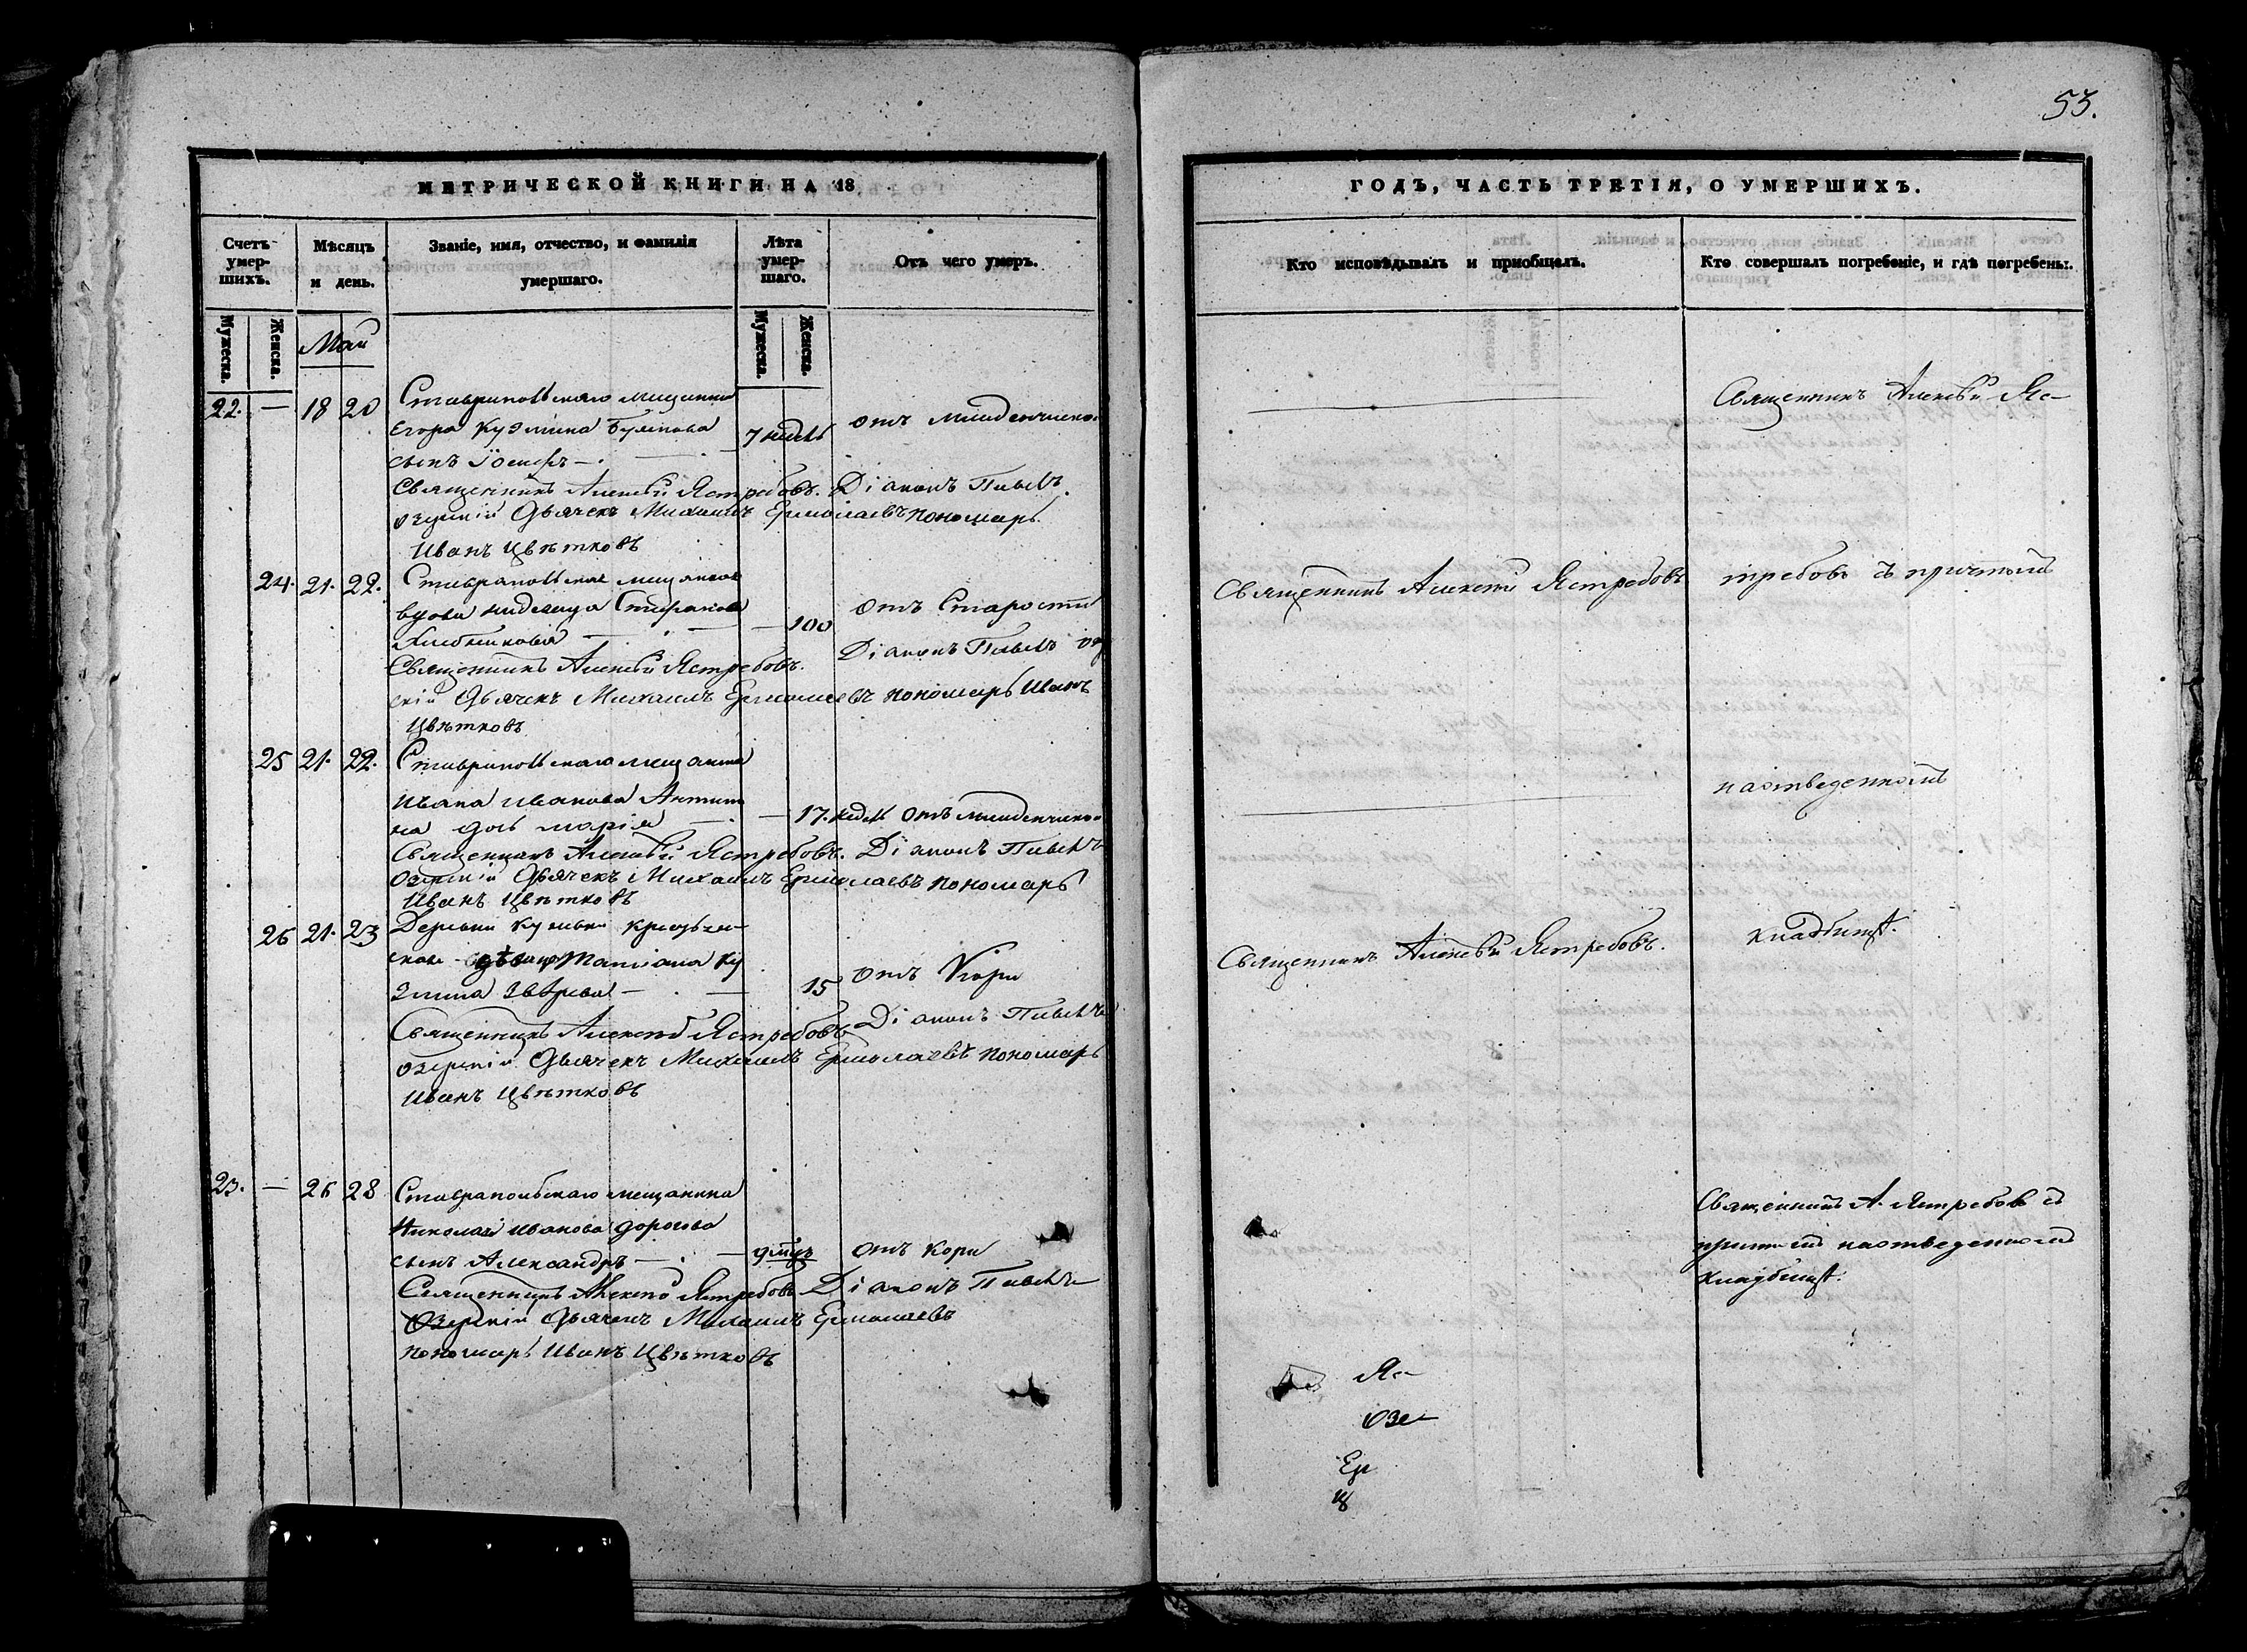 53.
МЕТРИЧЕСКОЙ КНИГИ НА 18
Счетъ умер- шихъ.
Мѣсяцъ и день.
Званіе, имя, отчество, и фамилія умершаго.
Лѣта умер- шаго.
Отъ чего умеръ.
Мужеска.
Женска.
Май
Мужеска.
Женска.
22. — 18 20 Ставропольскаго мещанина
Егора Кузмина
7 недѣль отъ младенческой
сынъ Іосифъ —
Священникъ Алексѣй Ястребовъ. Діаконъ Павелъ
Озерскій Дьячекъ Михаилъ Ермолаевъ пономарь
Иванъ Цвѣтковъ
24. 21. 22. Ставропольская мещанская
вдова
— 100 отъ Старости
Хлебникова —
Священникъ Алексѣй Ястребовъ. Діаконъ Павелъ Озер
скій Дьячекъ Михаилъ Ермолаевъ пономарь Иванъ
Цвѣтковъ
25 21. 22. Ставропольскаго мещанина
Ивана Иванова Антипи
на дочь Марія —
— 17. недель отъ младенческой
Священникъ Алексѣй Ястребовъ. Діаконъ Павелъ
Озерскій Дьячекъ Михаилъ Ермолаевъ пономарь
Иванъ Цвѣтковъ
26 21. 23 Деревни
Татіана Ку
змина Зверева —
15 отъ Кори
Священникъ Алексѣй Ястребовъ Діаконъ Павелъ
Озерскій Дьячекъ Михаилъ Ермолаевъ пономарь
Иванъ Цвѣтковъ
23. — 26 28 Ставропольскаго мещанина
Николая Иванова Дорогова
сынъ Александръ — отъ кори
Священникъ Алексѣй Ястребовъ Діаконъ Павелъ
Озерскій Дьячекъ Михаилъ Ермолаевъ
пономарь Иванъ Цвѣтковъ
ГОДЪ, ЧАСТЬ ТРЕТІЯ, О УМЕРШИХЪ.
Кто исповѣдывалъ и приобщалъ.
Кто совершалъ погребеніе, и гдѣ погребены.
Священникъ Алексѣй Яс-
Священникъ Алексѣй Ястребовъ
требовъ съ причтомъ
на отведенномъ
Священникъ Алексѣй Ястребовъ.
кладбищѣ.
Священникъ А. Ястребовъ съ
причтомъ на отведенномъ
кладбищѣ.
Яс-
Озе-
Ер
Ц